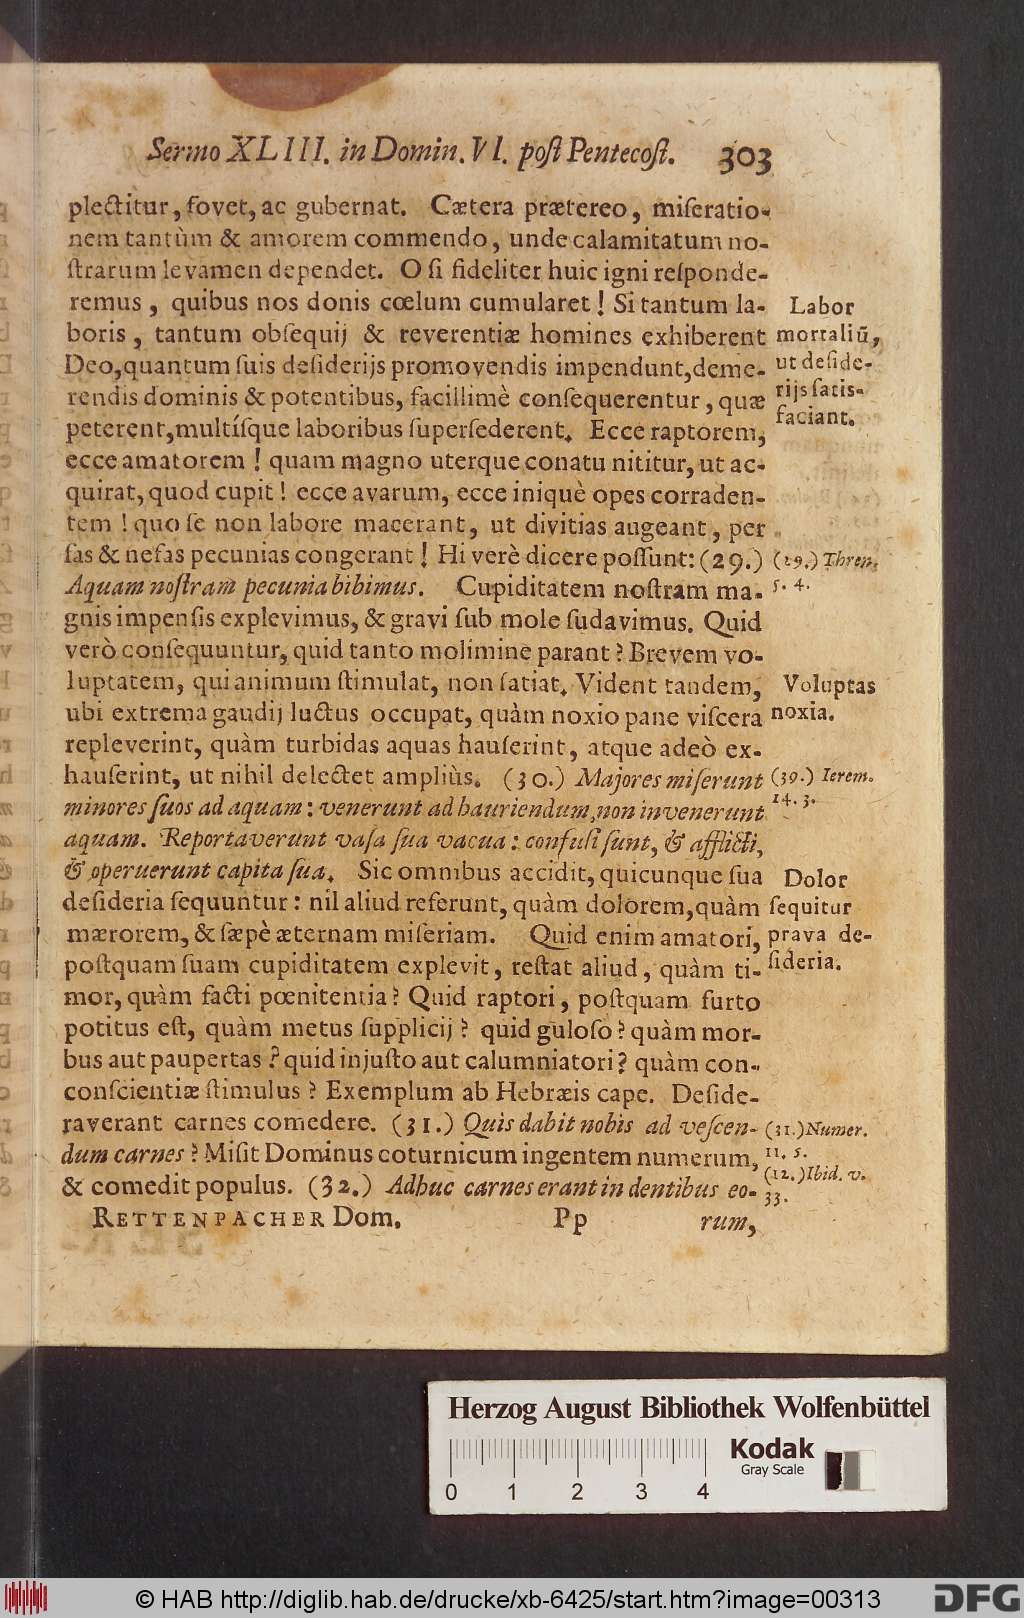 Sermo XLIII. in Domin. VI. poſt Pentecoſt. 303
plectitur, fovet, ac gubernat. Cætera prætereo, miſeratio-
nem tantùm & amorem commendo, unde calamitatum no-
ſtrarum levamen dependet. O ſi fideliter huic igni reſponde-
remus, quibus nos donis cœlum cumularet! Si tantum la-
boris, tantum obſequij & reverentiæ homines exhiberent
Deo, quantum ſuis deſiderijs promovendis impendunt, deme-
rendis dominis & potentibus, facillimè conſequerentur, quæ
peterent, multíſque laboribus ſuperſederent. Ecce raptorem,
ecce amatorem! quam magno uterque conatu nititur, ut ac-
quirat, quod cupit! ecce avarum, ecce iniquè opes corraden-
tem! quo ſe non labore macerant, ut divitias augeant, per
fas & nefas pecunias congerant! Hi verè dicere poſſunt: (29.)
Aquam noſtram pecunia bibimus. Cupiditatem noſtram ma-
gnis impenſis explevimus, & gravi ſub mole ſudavimus. Quid
verò conſequuntur, quid tanto molimine parant? Brevem vo-
luptatem, qui animum ſtimulat, non ſatiat. Vident tandem,
ubi extrema gaudij luctus occupat, quàm noxio pane viſcera
repleverint, quàm turbidas aquas hauſerint, atque adeò ex-
hauſerint, ut nihil delectet ampliùs. (30.) Majores miſerunt
minores ſuos ad aquam: venerunt ad hauriendum, non invenerunt
aquam. Reportaverunt vaſa ſua vacua: confuſi ſunt, & afflicti,
& operuerunt capita ſua. Sic omnibus accidit, quicunque ſua
deſideria ſequuntur: nil aliud referunt, quàm dolorem, quàm
mærorem, & ſæpè æternam miſeriam. Quid enim amatori,
poſtquam ſuam cupiditatem explevit, reſtat aliud, quàm ti-
mor, quàm facti pœnitentia? Quid raptori, poſtquam furto
potitus eſt, quàm metus ſupplicij? quid guloſo? quàm mor-
bus aut paupertas? quid injuſto aut calumniatori? quàm con-
conſcientiæ ſtimulus? Exemplum ab Hebræis cape. Deſide-
raverant carnes comedere. (31.) Quis dabit nobis ad veſcen-
dum carnes? Miſit Dominus coturnicum ingentem numerum,
& comedit populus. (32.) Adhuc carnes erant in dentibus eo-
RETTENPACHER Dom. Pp rum,
Labor
mortaliũ,
ut deſide-
rijs ſatis-
faciant.
(29.) Thren.
5. 4.
Voluptas
noxia.
(39.) Ierem.
14. 3.
Dolor
ſequitur
prava de-
ſideria.
(31.) Numer.
11. 5.
(12.) Ibid. v.
33.
Herzog August Bibliothek Wolfenbüttel
Kodak
Gray Scale
0 1 2 3 4
© HAB http://diglib.hab.de/drucke/xb-6425/start.htm?image=00313
DFG